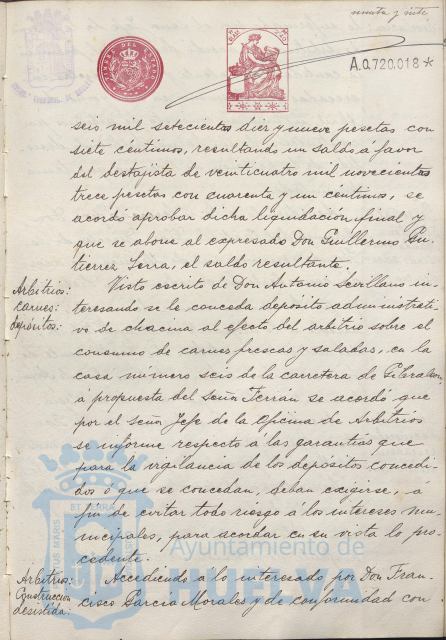 TIMBRE DEL ESTADO
A.0.720.018*
seis mil setecientas diez y nueve pesetas con
siete céntimos, resultando un saldo á favor
del destajista de veinticuatro mil novecientas
trece pesetas con cuarenta y un céntimos, se
acordó aprobar dicha liquidación final y
que se abone al expresado Don Guillermo Gu-
tierrez Serra, el saldo resultante.
Arbitrios:
carnes:
depósitos:
Visto escrito de Don Antonio Sevillano in-
teresando se le conceda depósito administrati-
vo de chacina al efecto del arbitrio sobre el
consumo de carnes frescas y saladas, en la
casa número seis de la carretera de Gibraleon
á propuesta del Señor Terrán se acordó que
por el Señor Jefe de la Oficina de Arbitrios
se informe respecto á las garantías que
para la vigilancia de los depósitos concedi-
dos ó que se concedan, deban exigirse, á
fin de evitar todo riesgo á los intereses mu-
nicipales, para acordar en su vista lo pro-
cedente.
Arbitrios:
Construcción
desistida:
Accediendo á lo interesado por Don Fran-
cisco García Morales y de conformidad con
Ayuntamiento de
HUELVA